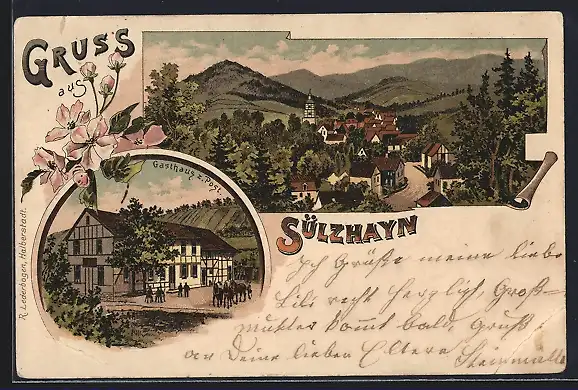 GRUSS
aus
Gasthaus z. Post.
SÜLZHAYN
R. Lederbogen, Halberstadt.
Ich Grüße meine liebe
recht herzlich, Groß-
mutter komt bald, Gruß
an Deine lieben Eltern